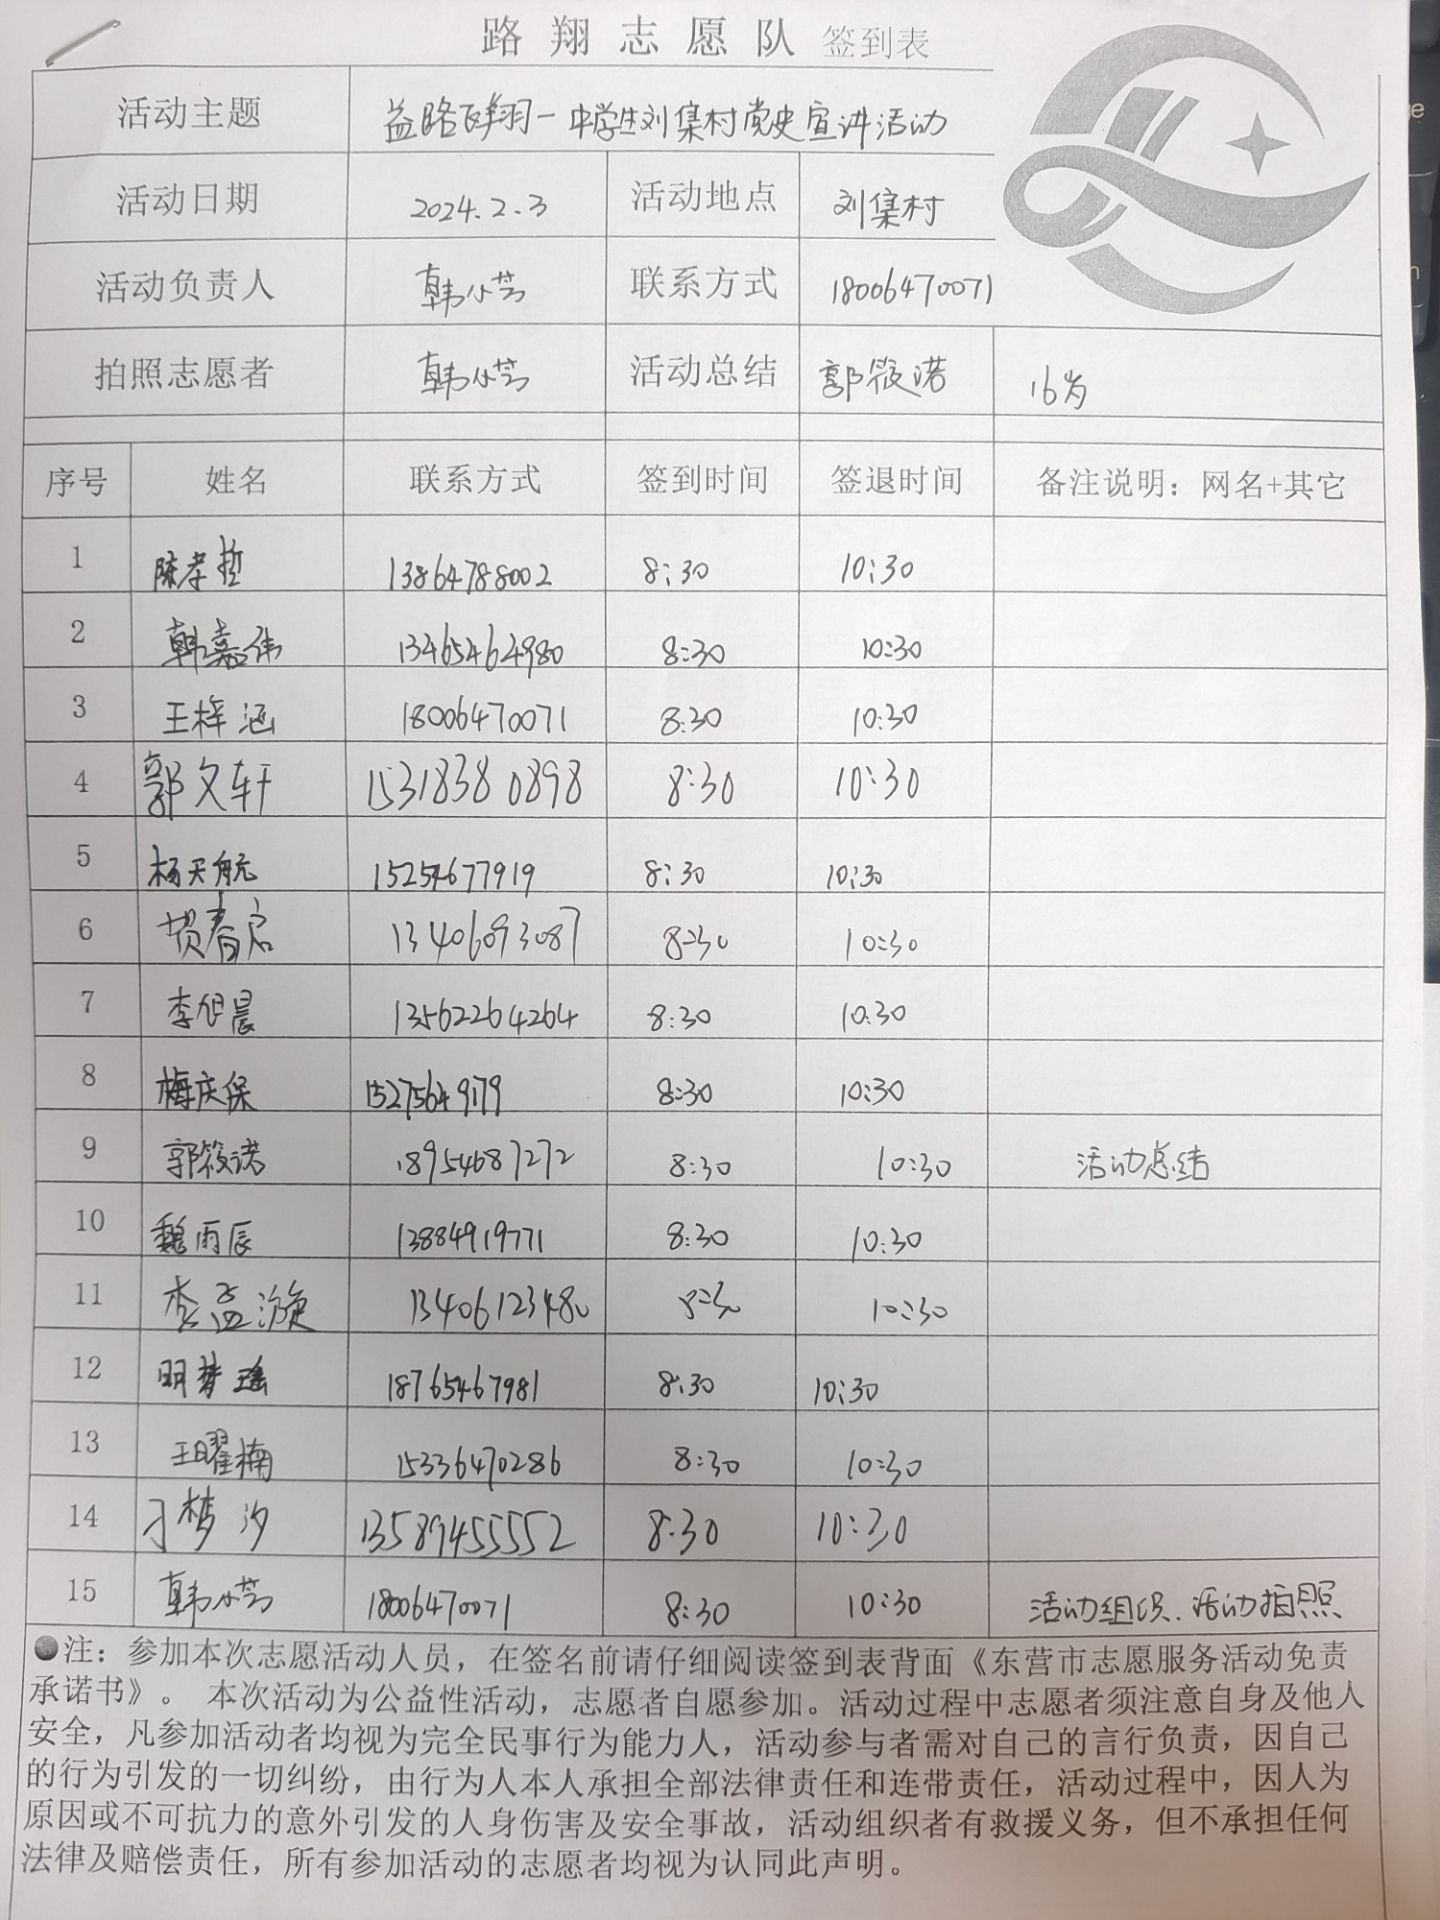 路翔志愿队 签到表
活动主题 益路群翔一中学生刘集村党史宣讲活动
活动日期 2024.2.3 活动地点 刘集村
活动负责人 韩小芳 联系方式 18006470071
拍照志愿者 韩小芳 活动总结 郭筱诺 16岁
序号 姓名 联系方式 签到时间 签退时间 备注说明：网名+其它
1 陈孝哲 13864788002 8:30 10:30
2 韩嘉伟 13465464980 8:30 10:30
3 王梓涵 18006470071 8:30 10:30
4 郭文轩 15318380898 8:30 10:30
5 杨天航 15254677919 8:30 10:30
6 春启 13406093087 8:30 10:30
7 李旭晨 13562264264 8:30 10:30
8 梅庆保 15275649179 8:30 10:30
9 郭筱诺 18954687272 8:30 10:30 活动总结
10 魏雨辰 13884919771 8:30 10:30
11 李孟漩 13406123480 8:30 10:30
12 明梦瑶 18765467981 8:30 10:30
13 王曜楠 15336470286 8:30 10:30
14 刁梦汐 13589455552 8:30 10:30
15 韩小芳 18006470071 8:30 10:30 活动组织.活动拍照
●注：参加本次志愿活动人员，在签名前请仔细阅读签到表背面《东营市志愿服务活动免责
承诺书》。 本次活动为公益性活动，志愿者自愿参加。活动过程中志愿者须注意自身及他人
安全，凡参加活动者均视为完全民事行为能力人，活动参与者需对自己的言行负责，因自己
的行为引发的一切纠纷，由行为人本人承担全部法律责任和连带责任，活动过程中，因人为
原因或不可抗力的意外引发的人身伤害及安全事故，活动组织者有救援义务，但不承担任何
法律及赔偿责任，所有参加活动的志愿者均视为认同此声明。